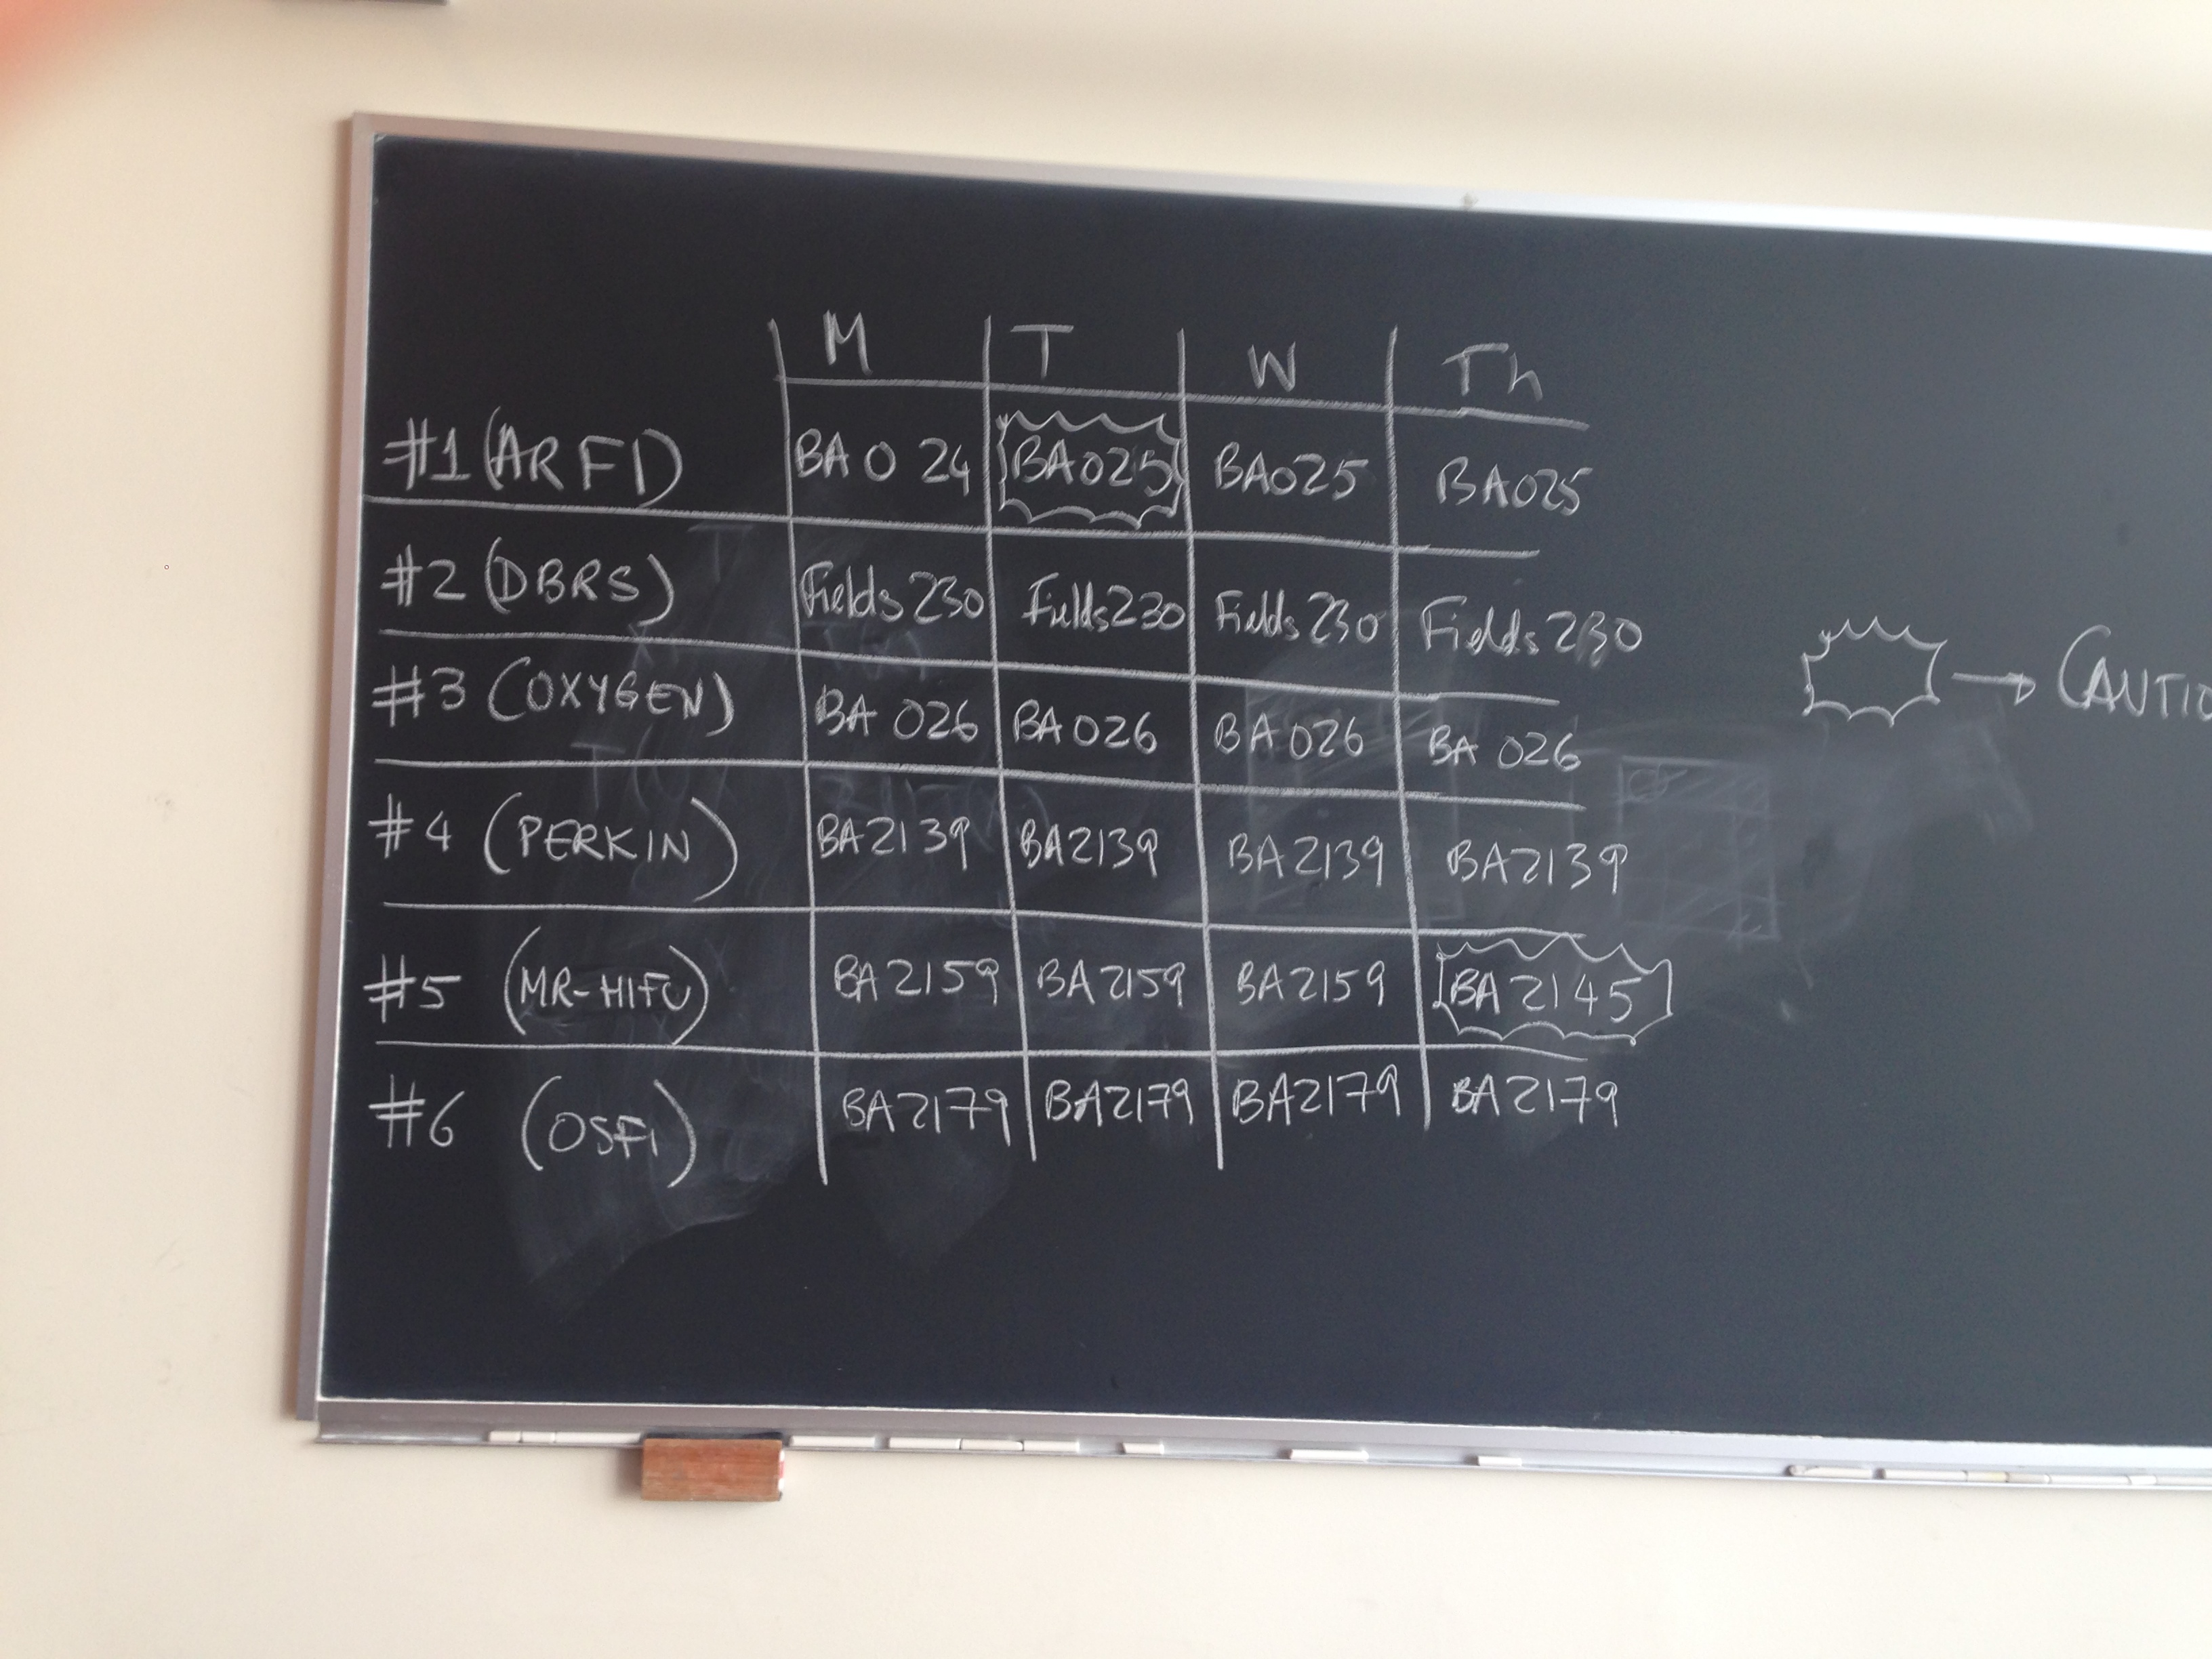 M T W Th
#1 (ARFI) BA 0 24 BA025 BA025 BA025
#2 (DBRS) Fields 230 Fields 230 Fields 230 Fields 230
#3 (OXYGEN) BA 026 BA 026 BA 026 BA 026
→ CAUTIO
#4 (PERKIN) BA2139 BA2139 BA2139 BA2139
#5 (MR-HIFU) BA 2159 BA 2159 BA 2159 BA 2145
#6 (OSFI) BA2179 BA2179 BA2179 BA2179